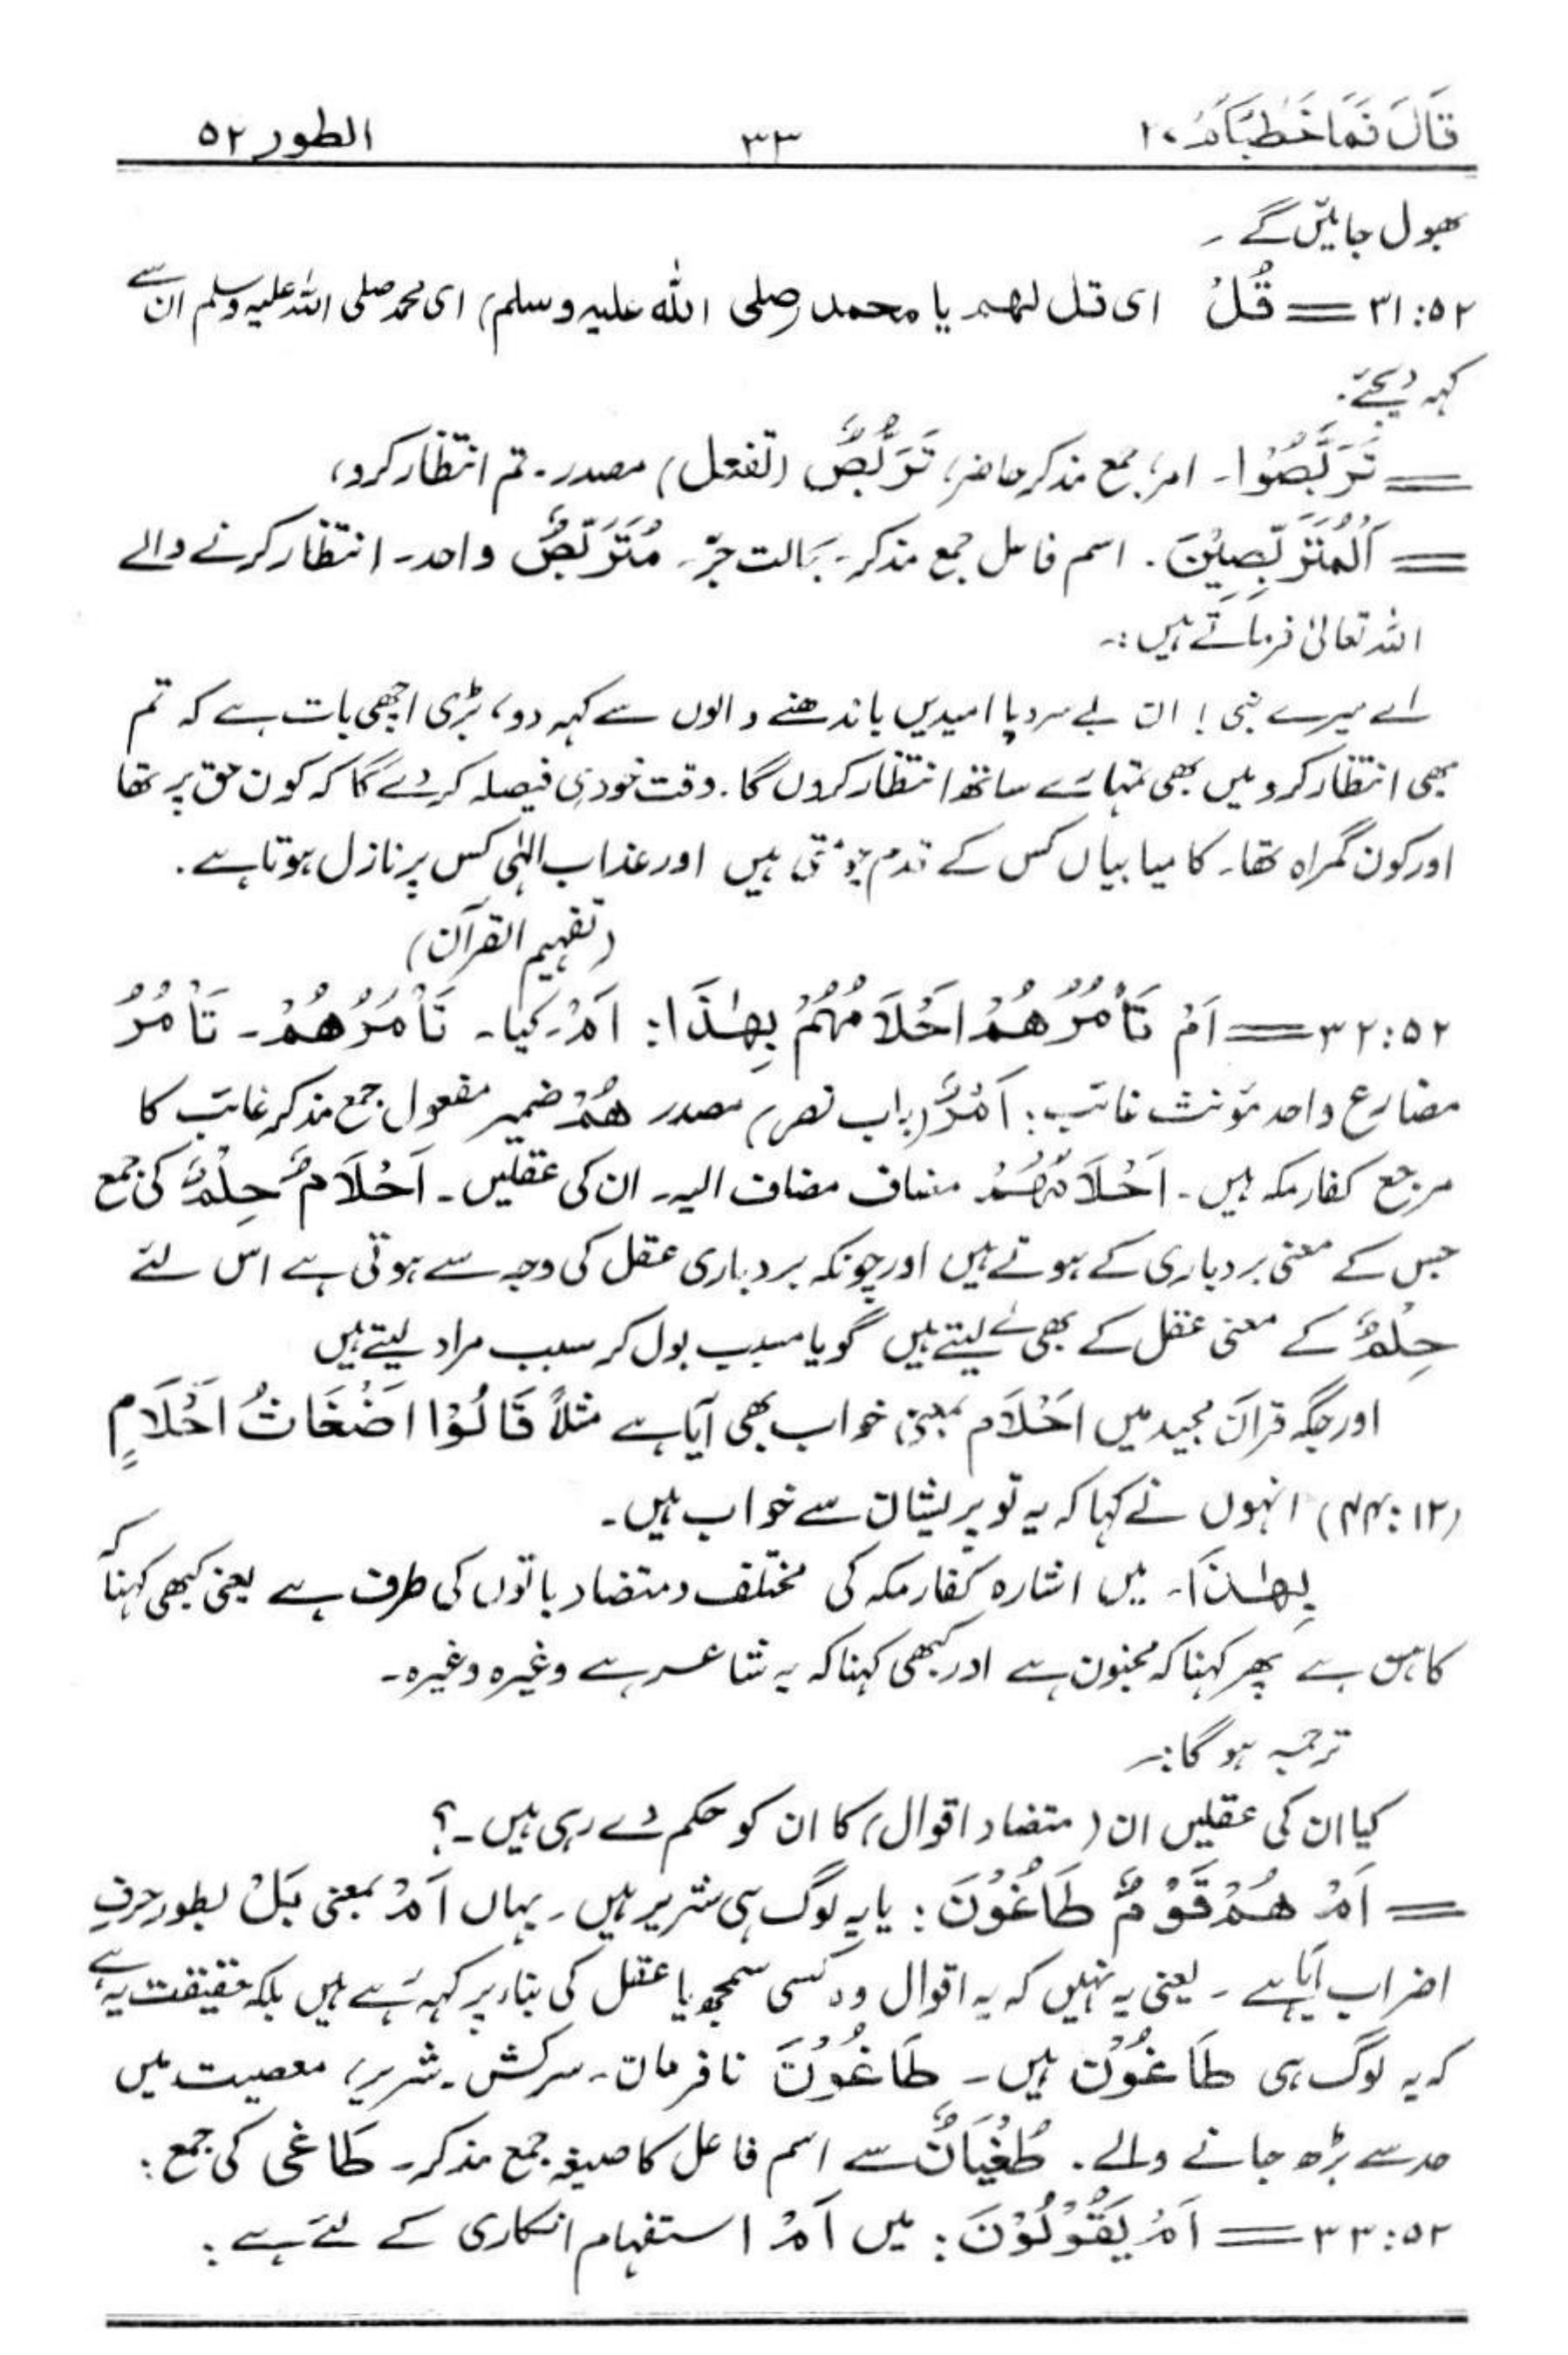 قَالَ فَمَا خَطْبُكُمْ ۲۷ ۳۳ الطور ۵۲
بھول جائیں گے ۔
۳۱:۵۲ = قُلْ ای قل لہم یا محمد (صلی اللہ علیہ وسلم) ای محمد صلی اللہ علیہ وسلم ان سے
کہہ دیجئے.
= تَرَبَّصُوْا۔ امر، جمع مذکر حاضر، تَرَبُّصٌ (تفعل) مصدر۔ تم انتظار کرو،
= اَلْمُتَرَبِّصِیْنَ۔ اسم فاعل جمع مذکر۔ بحالت جرّ۔ مُتَرَبِّصٌ واحد۔ انتظار کرنے والے
اللہ تعالیٰ فرماتے ہیں :۔
اے میرے نبی ! ان بے سروپا امیدیں باندھنے والوں سے کہہ دو، بڑی اچھی بات ہے کہ تم
بھی انتظار کرو میں بھی تمہارے ساتھ انتظار کروں گا. وقت خود ہی فیصلہ کر دے گا کہ کون حق پر تھا
اور کون گمراہ تھا۔ کامیابیاں کس کے قدم چومتی ہیں اور عذاب الٰہی کس پر نازل ہوتا ہے.
(تفہیم القرآن)
۳۲:۵۲ = اَمْ تَأْمُرُهُمْ اَحْلَامُهُمْ بِهٰذَا: اَمْ۔ کیا۔ تَأْمُرُهُمْ۔ تَأْمُرُ
مضارع واحد مؤنث غائب: اَمْرٌ (باب نصر) مصدر هُمْ ضمیر مفعول جمع مذکر غائب کا
مرجع کفار مکہ ہیں۔ اَحْلَامُهُمْ مضاف مضاف الیہ۔ ان کی عقلیں۔ اَحْلَامٌ حِلْمٌ کی جمع
جس کے معنی بردباری کے ہوتے ہیں اور چونکہ بردباری عقل کی وجہ سے ہوتی ہے اس لئے
حِلْمٌ کے معنی عقل کے بھی لے لیتے ہیں گویا مسبب بول کر سبب مراد لیتے ہیں
اور جگہ قرآن مجید میں اَحْلَام بمعنی خواب بھی آیا ہے مثلاً قَالُوْا اَضْغَاثُ اَحْلَامٍ
(۴۴:۱۲) انہوں نے کہا کہ یہ تو پریشان سے خواب ہیں۔
بِهٰذَا۔ میں اشارہ کفار مکہ کی مختلف و متضاد باتوں کی طرف ہے یعنی کبھی کہنا کہ
کاہن ہے پھر کہنا کہ مجنون ہے اور کبھی کہنا کہ یہ شاعر ہے وغیرہ وغیرہ۔
ترجمہ ہو گا :۔
کیا ان کی عقلیں ان (متضاد اقوال) کا ان کو حکم دے رہی ہیں۔؟
= اَمْ هُمْ قَوْمٌ طَاغُوْنَ: یا یہ لوگ ہی شریر ہیں۔ یہاں اَمْ بمعنی بَلْ بطور حرفِ
اضراب آیا ہے ۔ یعنی یہ نہیں کہ یہ اقوال وہ کسی سمجھ یا عقل کی بناء پر کہہ رہے ہیں بلکہ حقیقت یہ ہے
کہ یہ لوگ ہی طَاغُوْن ہیں۔ طَاغُوْنَ نافرمان۔ سرکش۔ شریر، معصیت میں
حد سے بڑھ جانے والے۔ طُغْیَانٌ سے اسم فاعل کا صیغہ جمع مذکر۔ طَاغی کی جمع :
۳۳:۵۲ = اَمْ یَقُوْلُوْنَ: میں اَمْ استفہام انکاری کے لئے ہے :